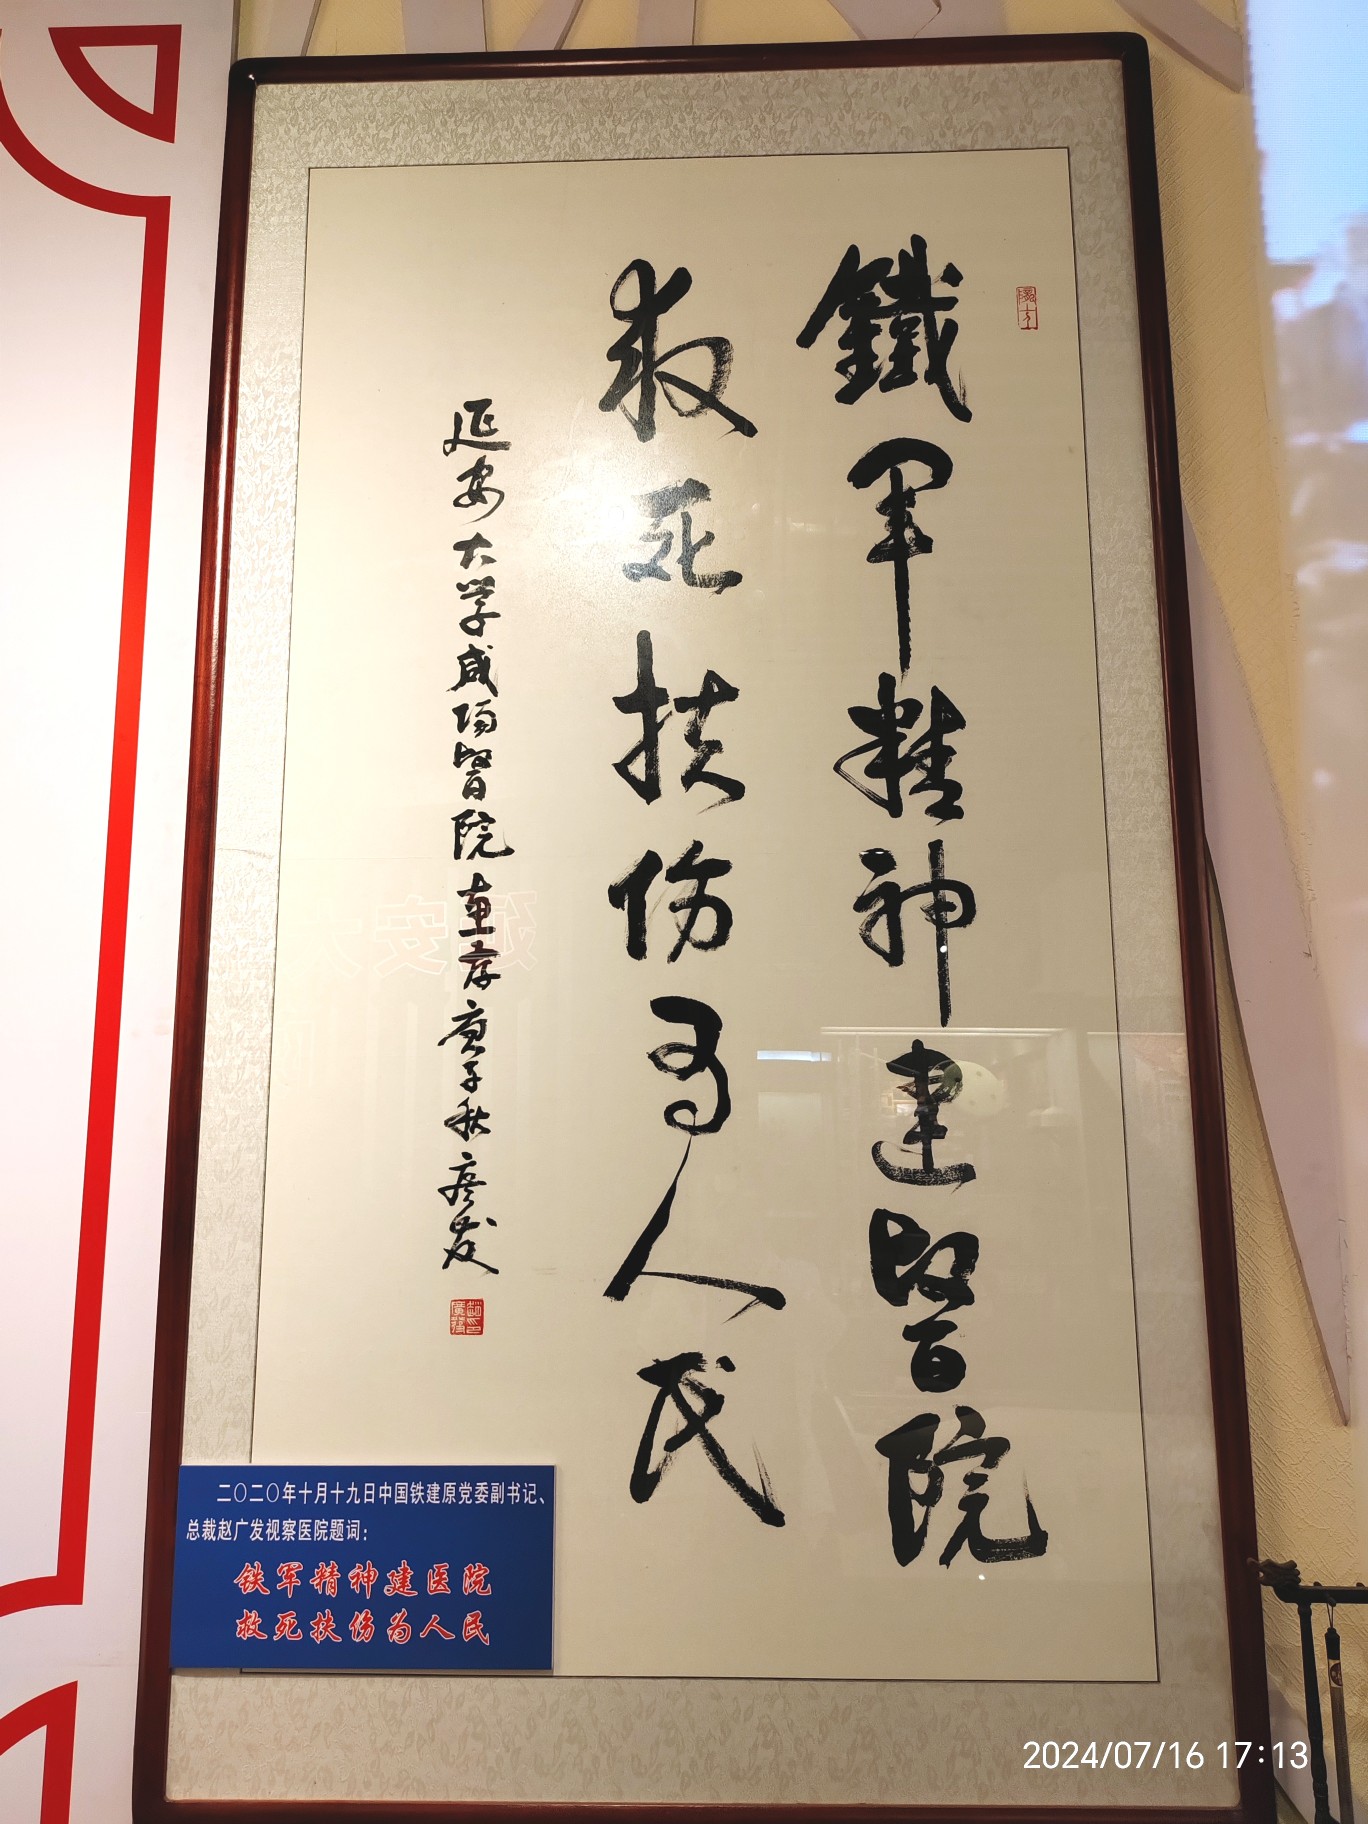 鐵軍精神建醫院
救死扶伤为人民
延安大学咸阳醫院惠存庚子秋广发
二〇二〇年十月十九日中国铁建原党委副书记、
总裁赵广发视察医院题词：
铁军精神建医院
救死扶伤为人民
2024/07/16 17:13